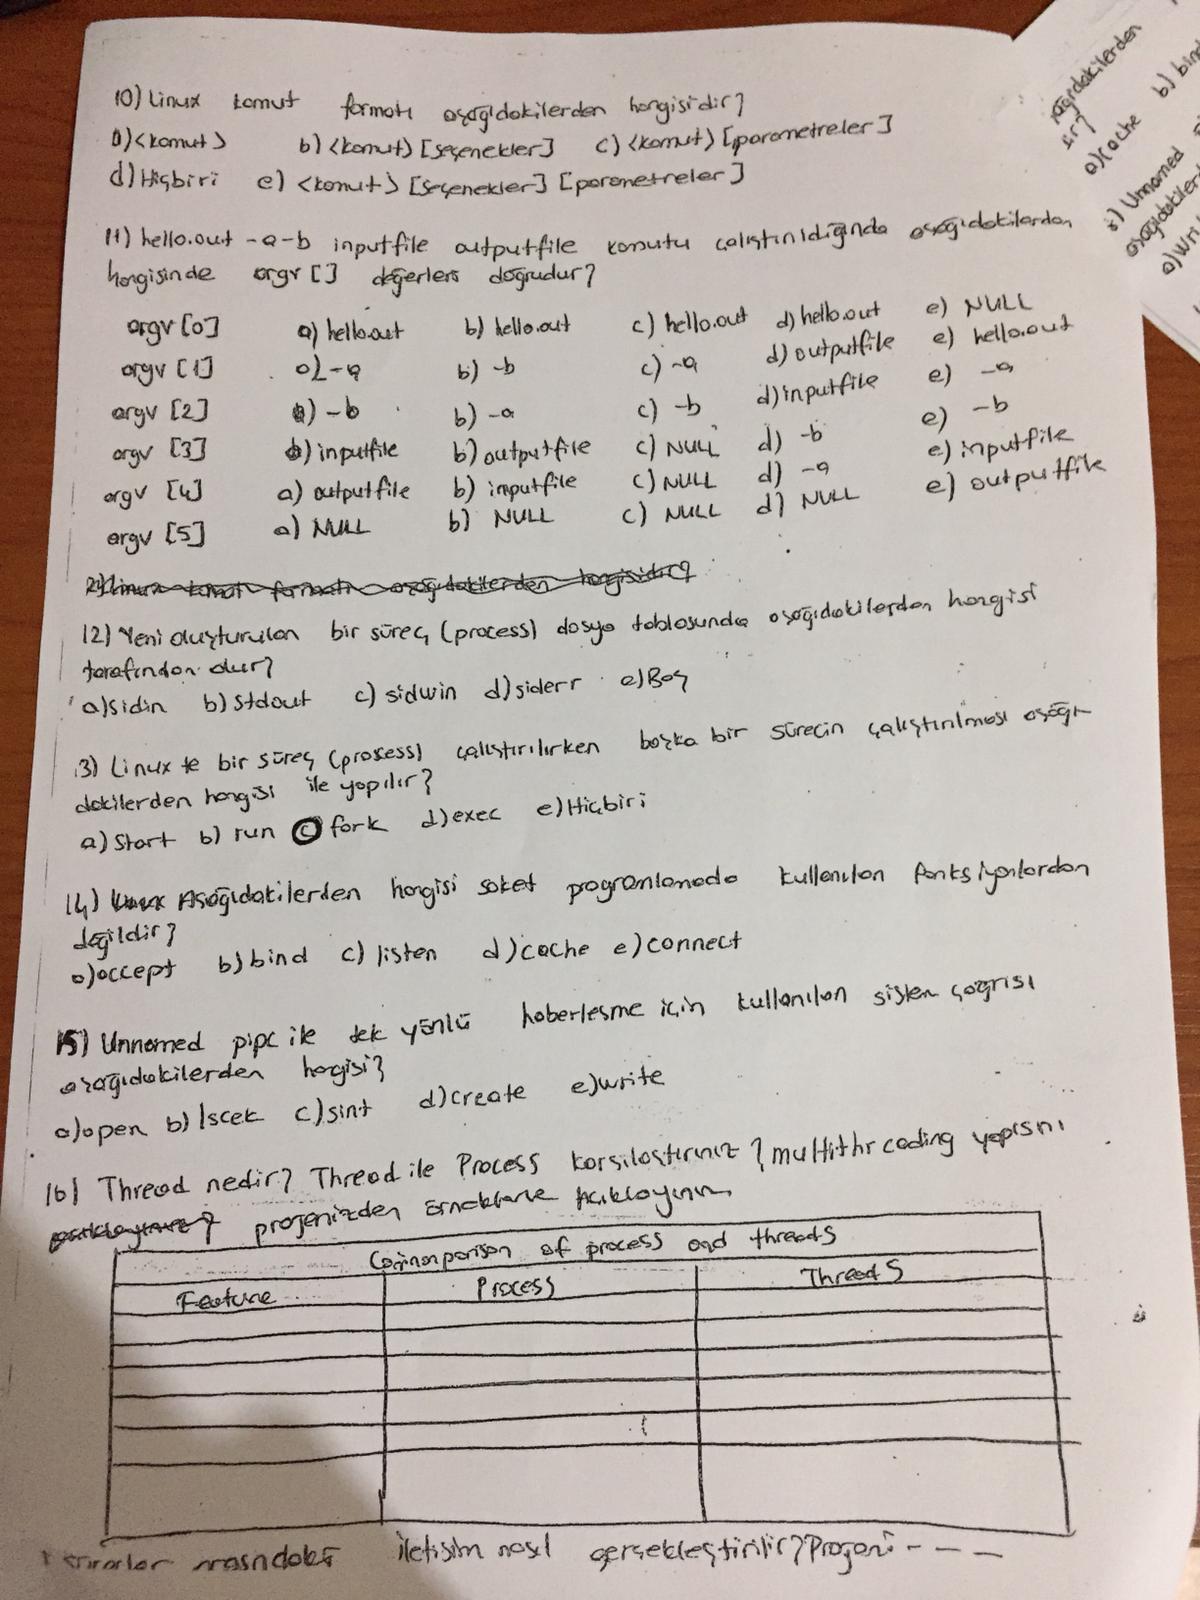 10) Linux komut formatı aşağıdakilerden hangisidir?
a) <komut> b) <komut> [seçenekler] c) <komut> [parametreler]
d) Hiçbiri e) <komut> [seçenekler] [parametreler]
11) hello.out -a-b inputfile outputfile komutu çalıştırıldığında aşağıdakilerden
hangisinde argv [] değerleri doğrudur?
argv [0] a) hello.out b) hello.out c) hello.out d) hello.out e) NULL
argv [1] a) -a b) -b c) -a d) outputfile e) hello.out
argv [2] a) -b b) -a c) -b d) inputfile e) -a
argv [3] a) inputfile b) outputfile c) NULL d) -b e) -b
argv [4] a) outputfile b) inputfile c) NULL d) -a e) inputfile
argv [5] a) NULL b) NULL c) NULL d) NULL e) outputfile
Linux komut formatı aşağıdakilerden hangisidir?
12) Yeni oluşturulan bir süreç (process) dosya tablosunda aşağıdakilerden hangisi
tarafından olur?
a) sidin b) Stdout c) sidwin d) siderr e) Boş
13) Linux te bir süreç (prosess) çalıştırılırken başka bir sürecin çalıştırılması aşağı
dakilerden hangisi ile yapılır?
a) Start b) run c) fork d) exec e) Hiçbiri
14) Aşağıdakilerden hangisi soket programlamada kullanılan fonksiyonlardan
değildir?
a) accept b) bind c) listen d) cache e) connect
15) Unnamed pipe ile tek yönlü haberleşme için kullanılan sistem çağrısı
aşağıdakilerden hangisi?
a) open b) lseek c) sint d) create e) write
16) Thread nedir? Thread ile Process karşılaştırınız? multithreading yapısını
projenizden örneklerle Açıklayınız
Comparison of process and threads
Feature Process Threads
arasındaki iletişim nasıl gerçekleştirilir? Projeni - - -
aşağıdakilerden
sir?
a) cache b) bind
Unnamed
aşağıdakilerd
a) Wri